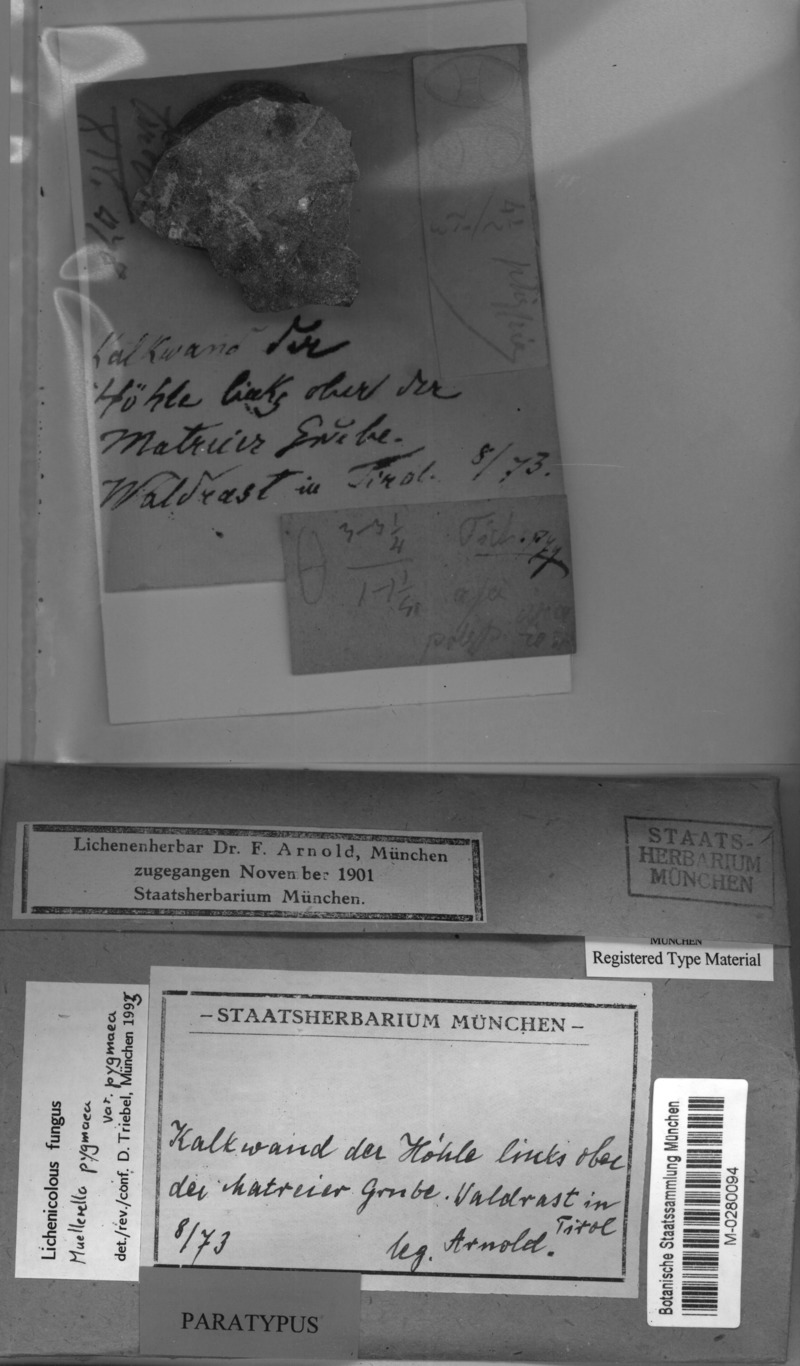 XIV. 478
4½
Kalkwand der
Höhle links ober der
Matreier Grube.
Waldrast in Tirol. 8/73.
3-3¼
1-1¼
Lichenenherbar Dr. F. Arnold, München
zugegangen November 1901
Staatsherbarium München.
STAATS-
HERBARIUM
MÜNCHEN
MÜNCHEN
Registered Type Material
Lichenicolous fungus
Muellerella pygmaea
var. pygmaea
det./rev./conf. D. Triebel, München 1993
– STAATSHERBARIUM MÜNCHEN –
Kalkwand der Höhle links ober
der Matreier Grube. Valdrast in
Tirol
8/73
leg. Arnold.
PARATYPUS
Botanische Staatssammlung München
M-0280094